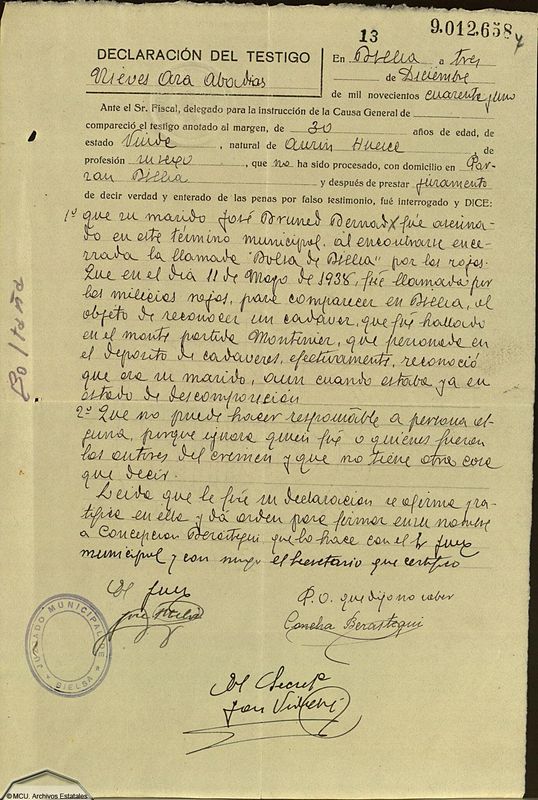 13
9.012.658
DECLARACIÓN DEL TESTIGO
Nieves Ara Abadias
En Bielsa a tres
de Diciembre
de mil novecientos cuarenta y uno
Ante el Sr. Fiscal, delegado para la instrucción de la Causa General de
compareció el testigo anotado al margen, de 30 años de edad, de
estado Viuda, natural de Aurin Huesca, de
profesión , que no ha sido procesado, con domicilio en Par-
zan Bielsa y después de prestar juramento
de decir verdad y enterado de las penas por falso testimonio, fué interrogado y DICE:
1º que su marido José Bruned Bernad fué asesina-
do en este término municipal, al encontrarse ence-
rrada la llamada "Bolsa de Bielsa" por los rojos.
Que en el dia 11 de Mayo de 1938, fué llamada por
las milicias rojas, para comparecer en Bielsa, al
objeto de reconocer un cadaver, que fué hallado
en el monte partida Montinier, que personada en
el deposito de cadaveres, efectivamente, reconoció
que era su marido, aun cuando estaba ya en
estado de descomposición
2º Que no puede hacer responsable a persona al-
guna, porque ignora quien fué o quienes fueron
los autores del crimen y que no tiene otra cosa
que decir.
Leida que le fué su declaracion se afirma y ra-
tifica en ella y dá orden para firmar en su nombre
a Concepcion Berastegui que lo hace con el Sr Juez
municipal y con migo el Secretario que certifico
El Juez
P.O. que dijo no saber
Concha Berastegui
El Secret
JUZGADO MUNICIPAL DE
BIELSA
Boltaña
© MCU. Archivos Estatales